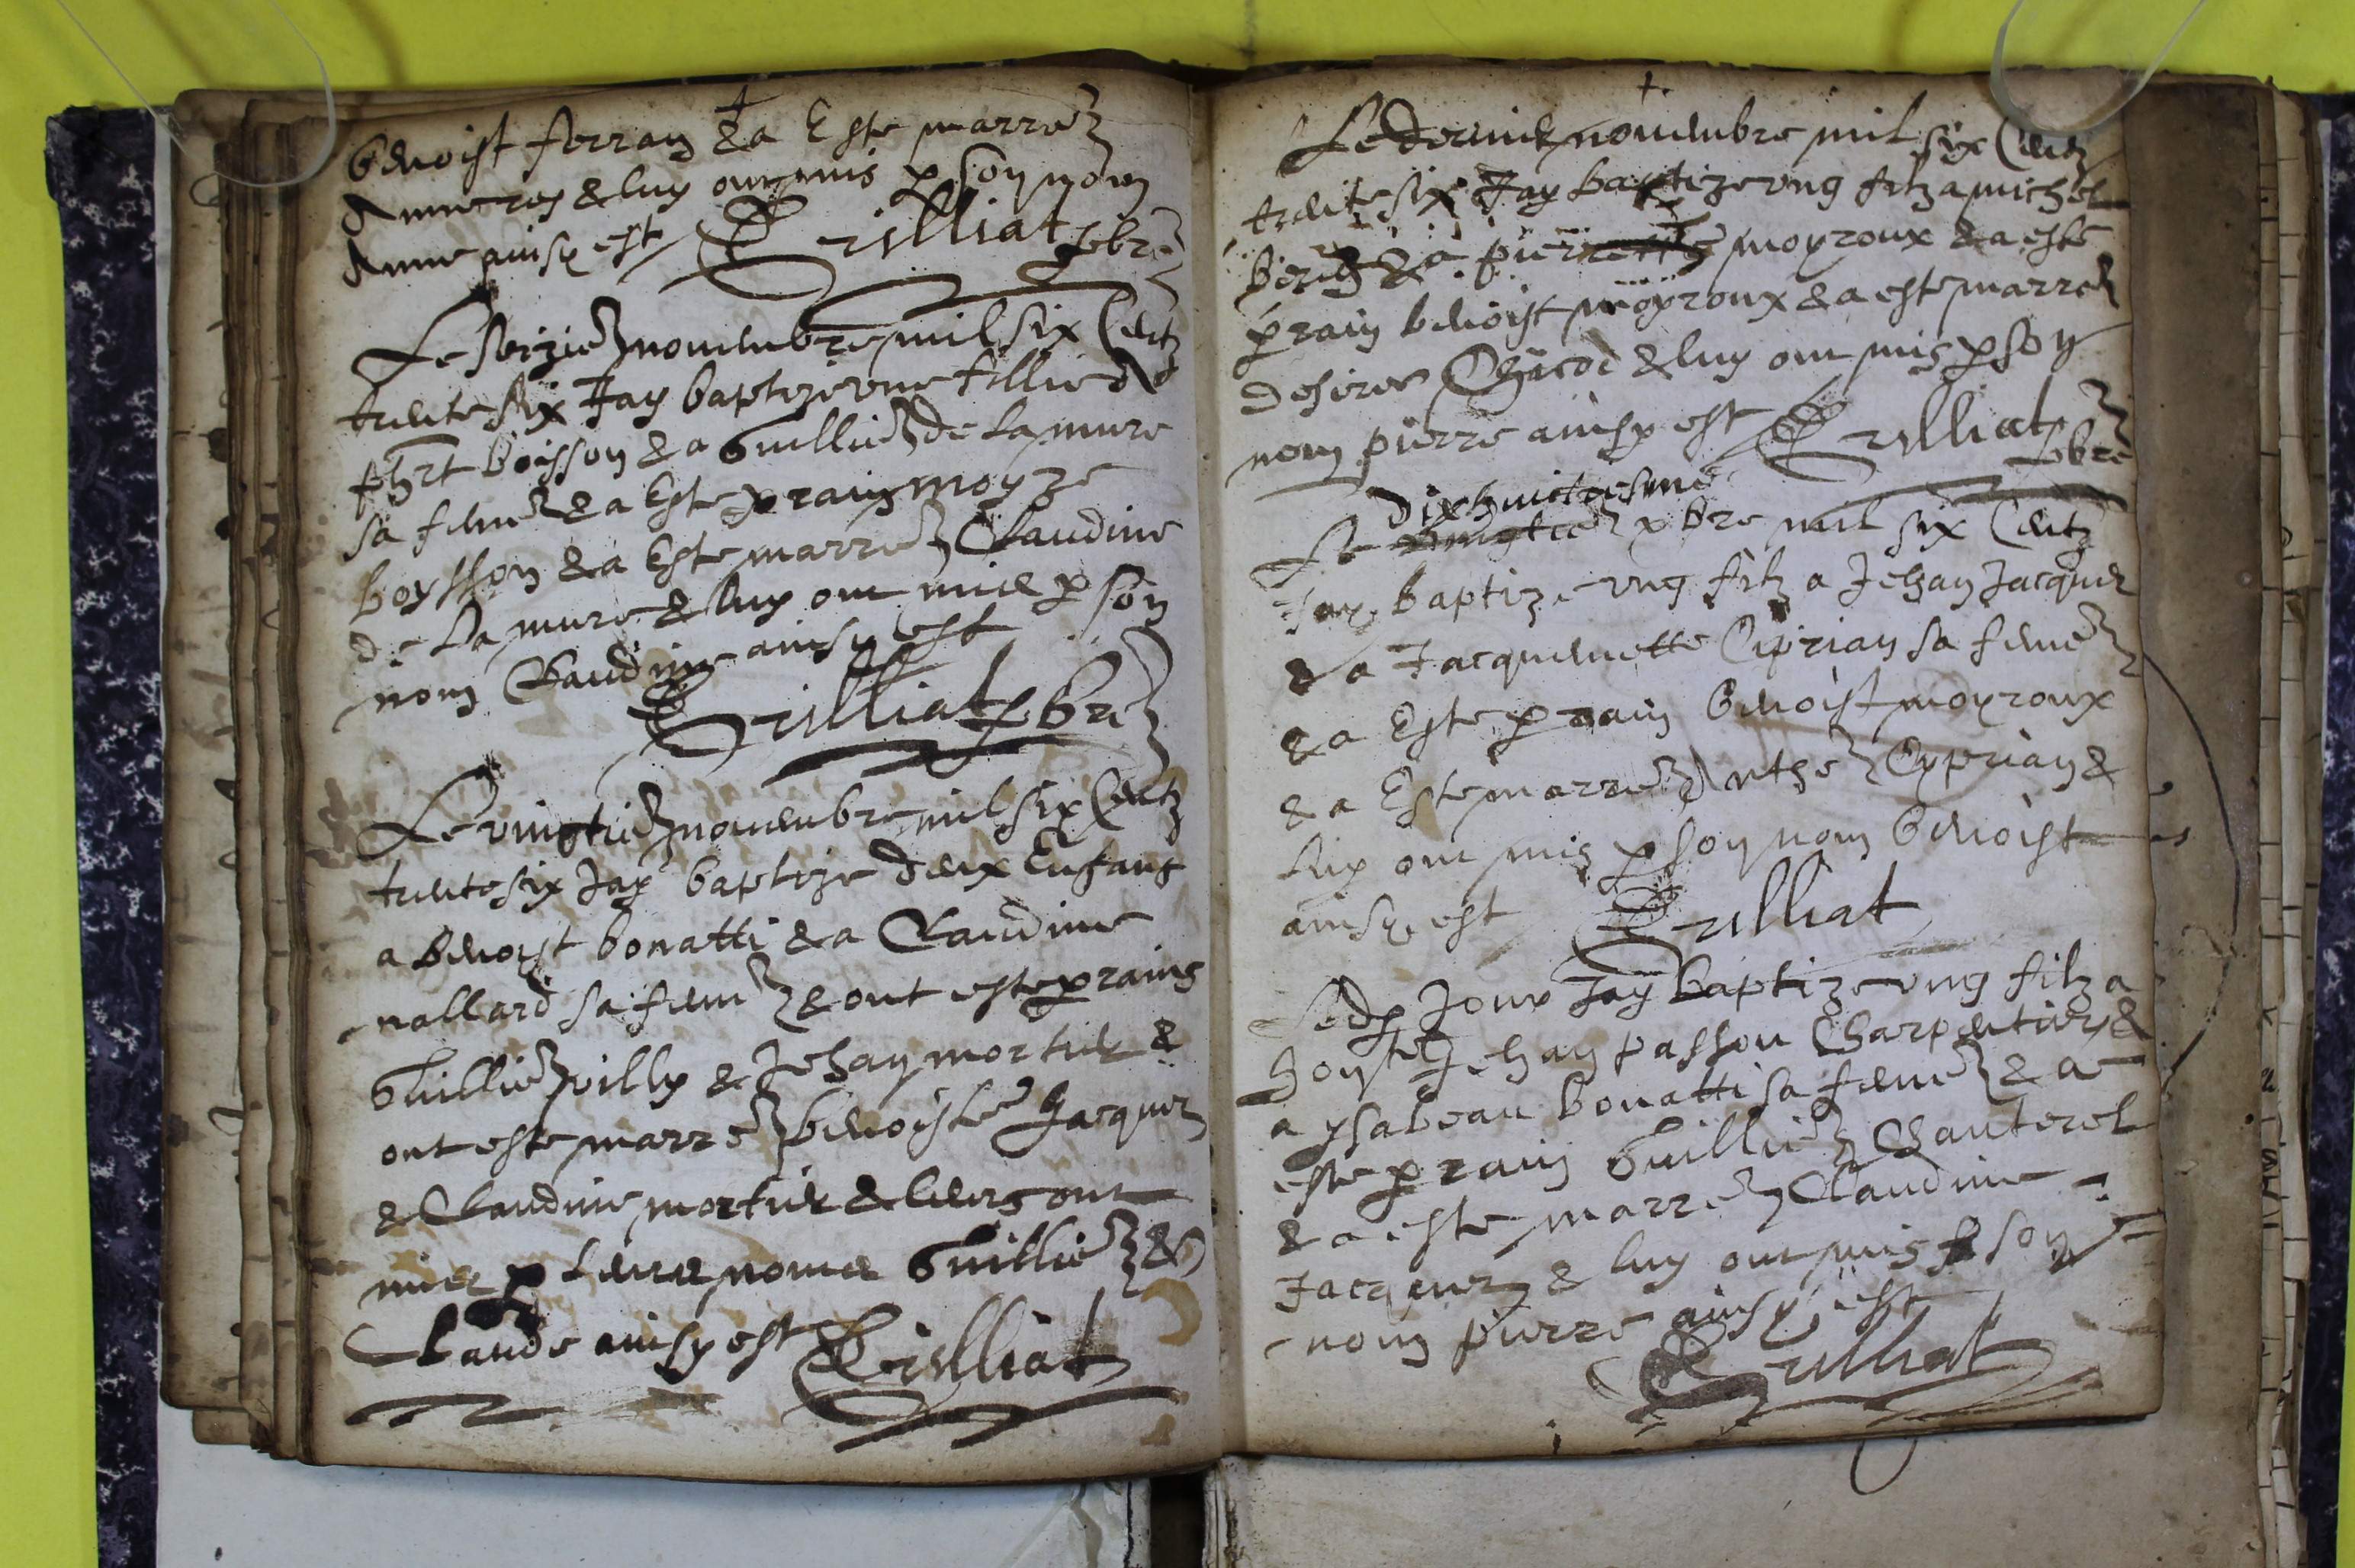 benoist ferran & a Este marre
Anne & luy ont mis p son nom
Anne ainsy est Trilliat pbre
Le seizie novembre mil six Centz
trente six Jay baptize une fillie a
phrt boisson & a Guillie de la mure
sa feme & a Este prain moyze
boysson & a Este marre Claudine
de la mure & luy ont mis p son
nom Claudine ainsy est
Trilliat pbre
Le vingtie novembre mil six Centz
trente six Jay baptize deux Enfans
a benoist bonatti & a Claudine
nallard sa feme & ont este prains
Guillie villy & Jehan mortier &
ont este marre benoiste Jacquez
& Claudine mortier & leurs ont
mis p leurs noms Guillie &
Claude ainsy est Trilliat
Le dernier novembre mil six Centz
trente six Jay baptize ung filz a michel
& a pierrette moyroux & a este
prain benoist moyroux & a este marre
desiree & luy ont mis p son
nom pierre ainsy est Trilliat pbre
dixhuictiesme
Le vingtie xbre mil six Centz
Jay baptize ung filz a Jehan Jacquez
& a Jacquemette Ciprian sa feme
& a Este prain benoist moyroux
& a Este marre Anthe Cyprian &
luy ont mis p son nom benoist
ainsy est Trilliat
Ledp Jour Jay baptize ung filz a
hoste Jehan passou Charpentier &
a ysabeau bonatti sa feme & a
este prain Guillie Chanterel
& a este marre Claudine
Jacquez & luy ont mis p son
nom pierre ainsy est
Trilliat